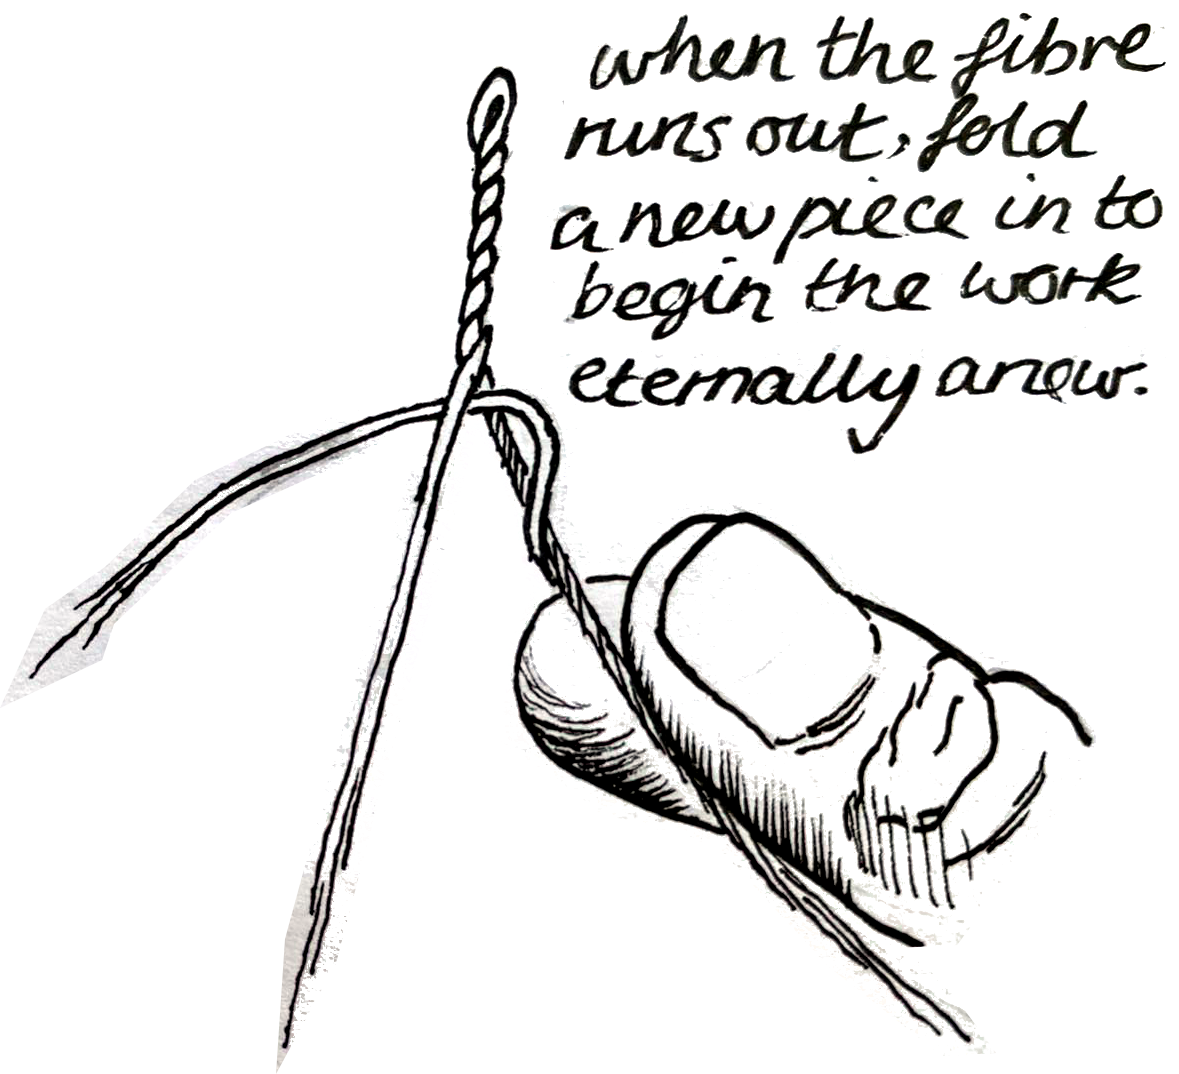 when the fibre
runs out, fold
a new piece in to
begin the work
eternally anew.